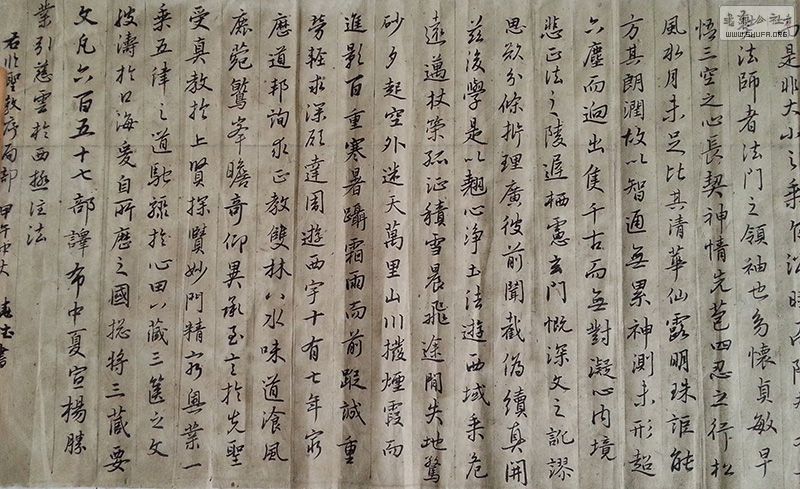 是非大小之乘乍沿時而隆
法師者法門之領袖也幼懷貞敏早
悟三空之心長契神情先苞四忍之行松
風水月未足比其清華仙露明珠詎能
方其朗潤故以智通無累神測未形超
六塵而迥出隻千古而無對凝心內境
悲正法之陵遲栖慮玄門慨深文之訛謬
思欲分條析理廣彼前聞截偽續真開
茲後學是以翹心淨土法遊西域乘危
遠邁杖策孤征積雪晨飛途間失地驚
砂夕起空外迷天萬里山川撥煙霞而
進影百重寒暑躡霜雨而前蹤誠重
勞輕求深願達周遊西宇十有七年窮
歷道邦詢求正教雙林八水味道飡風
鹿菀鷲峯瞻奇仰異承至言於先聖
受真教於上賢探賾妙門精窮奧業一
乘五律之道馳驟於心田八藏三篋之文
波濤於口海爰自所歷之國總將三藏要
文凡六百五十七部譯布中夏宣揚勝
業引慈雲於西極注法
聖教序局部 甲午中秋 書
WWW.SHUFA.ORG